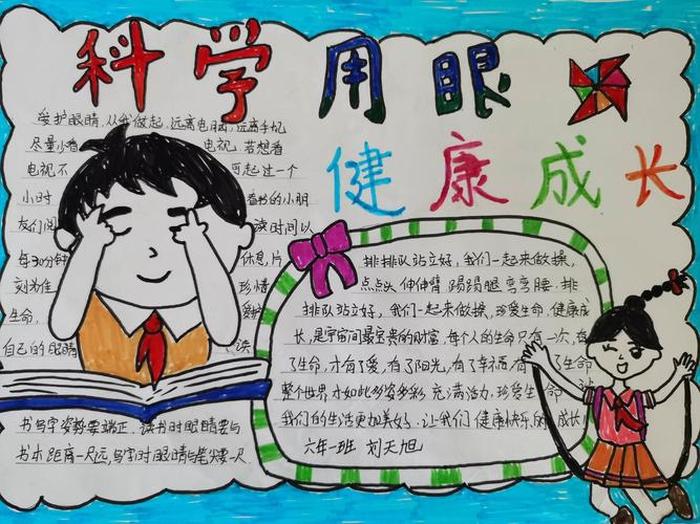 科学用眼
健康成长
爱护眼睛,从我做起,远离电脑,远离手机
尽量少看 电视,若想看
电视不 可起过一个
小时 看书的小朋
友们阅 读时间以
每30分钟 休息,片
刻为准 珍惜
生命,
自己的眼睛
书写字姿势要端正,读书时眼睛要与
书本距离一尺远,写字时眼睛与笔尖要一尺
排排队站立好,我们一起来做操,
点点头,伸伸臂,踢踢腿,弯弯腰,排
排队站立好,我们一起来做操,珍爱生命,健康成
长,是宇宙间最宝贵的财富,每个人的生命只有一次,有
了生命,才有了爱,有了阳光,有了幸福,有 了生命
整个世界才如此多姿多彩,充满活力,珍爱生命
我们的生活更加美好,让我们健康快乐的成长
六年一班 刘天旭